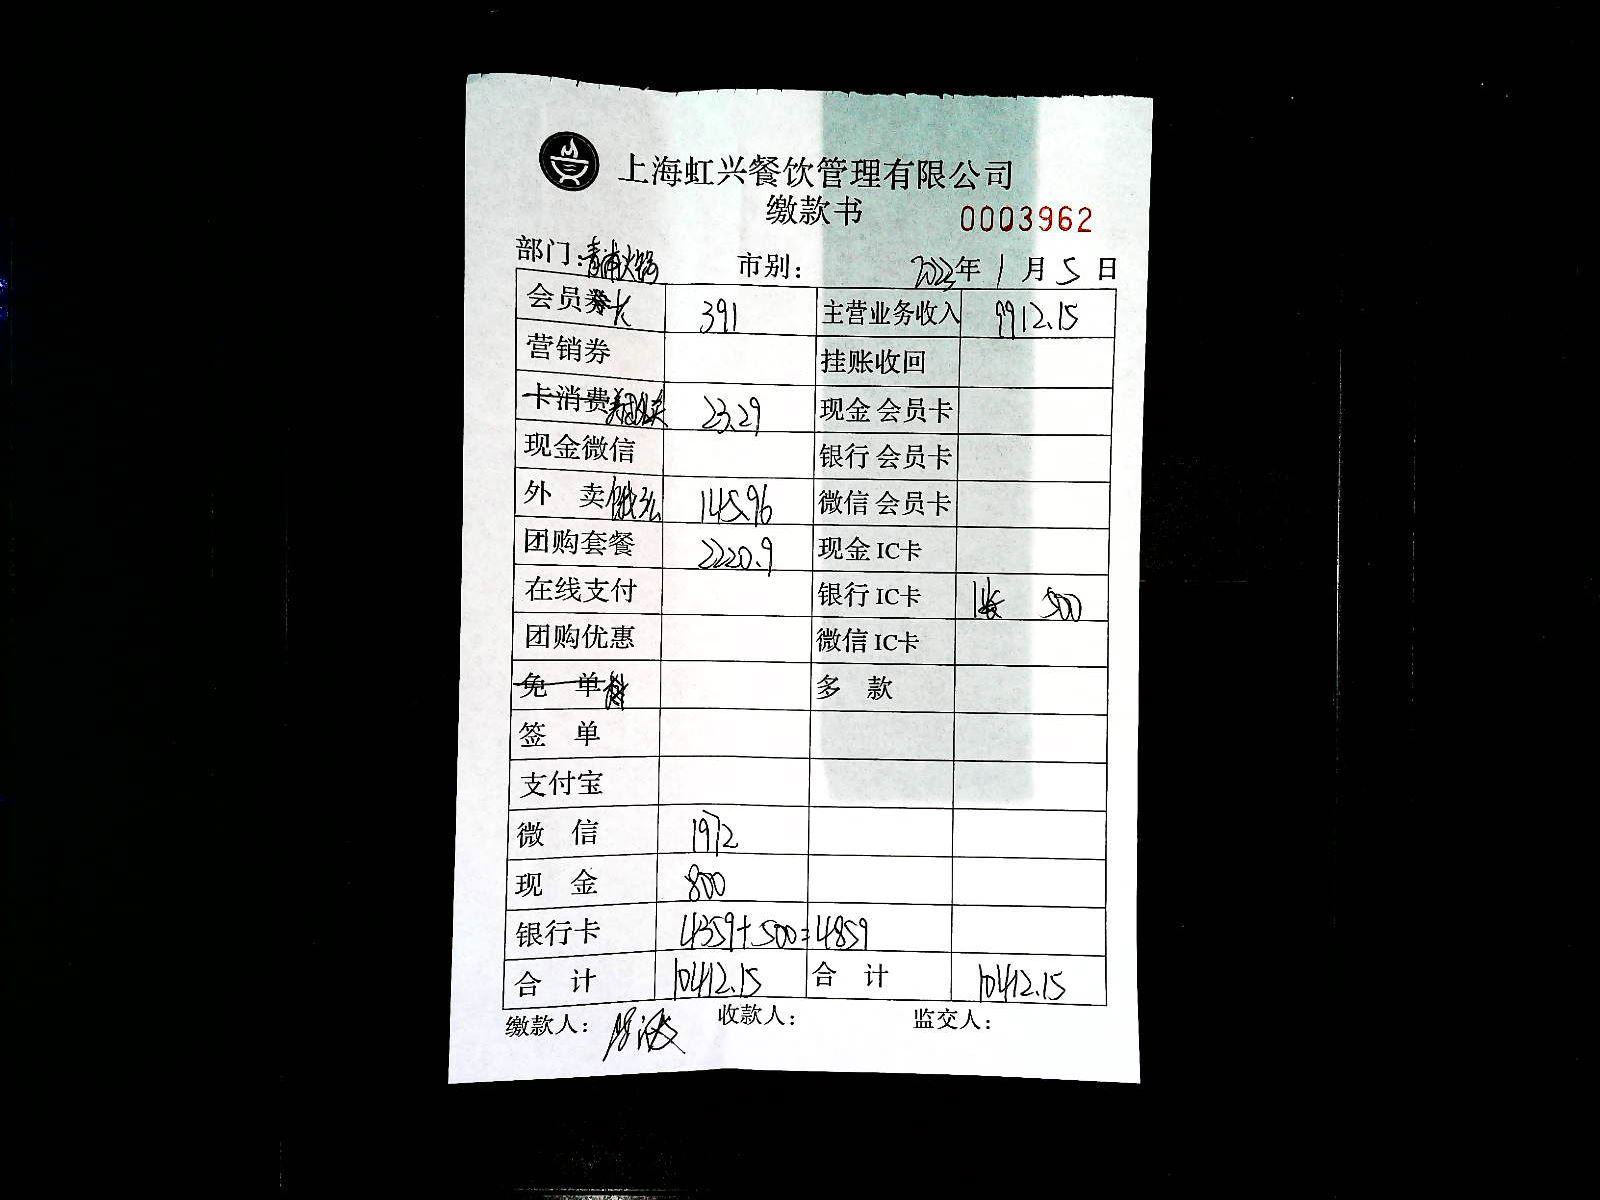 上海虹兴餐饮管理有限公司
缴款书 0003962
部门：青浦火锅 市别： 2023年 1 月 5 日
会员卡 391 主营业务收入 9912.15
营销券 挂账收回
卡消费美团外卖 23.29 现金 会员卡
现金微信 银行 会员卡
外 卖饿了么 145.96 微信 会员卡
团购套餐 2220.9 现金 IC卡
在线支付 银行 IC卡 1张 500
团购优惠 微信 IC卡
免 单 多 款
签 单
支付宝
微 信 1972
现 金 800
银行卡 4359+500=4859
合 计 10412.15 合 计 10412.15
缴款人： 收款人： 监交人：